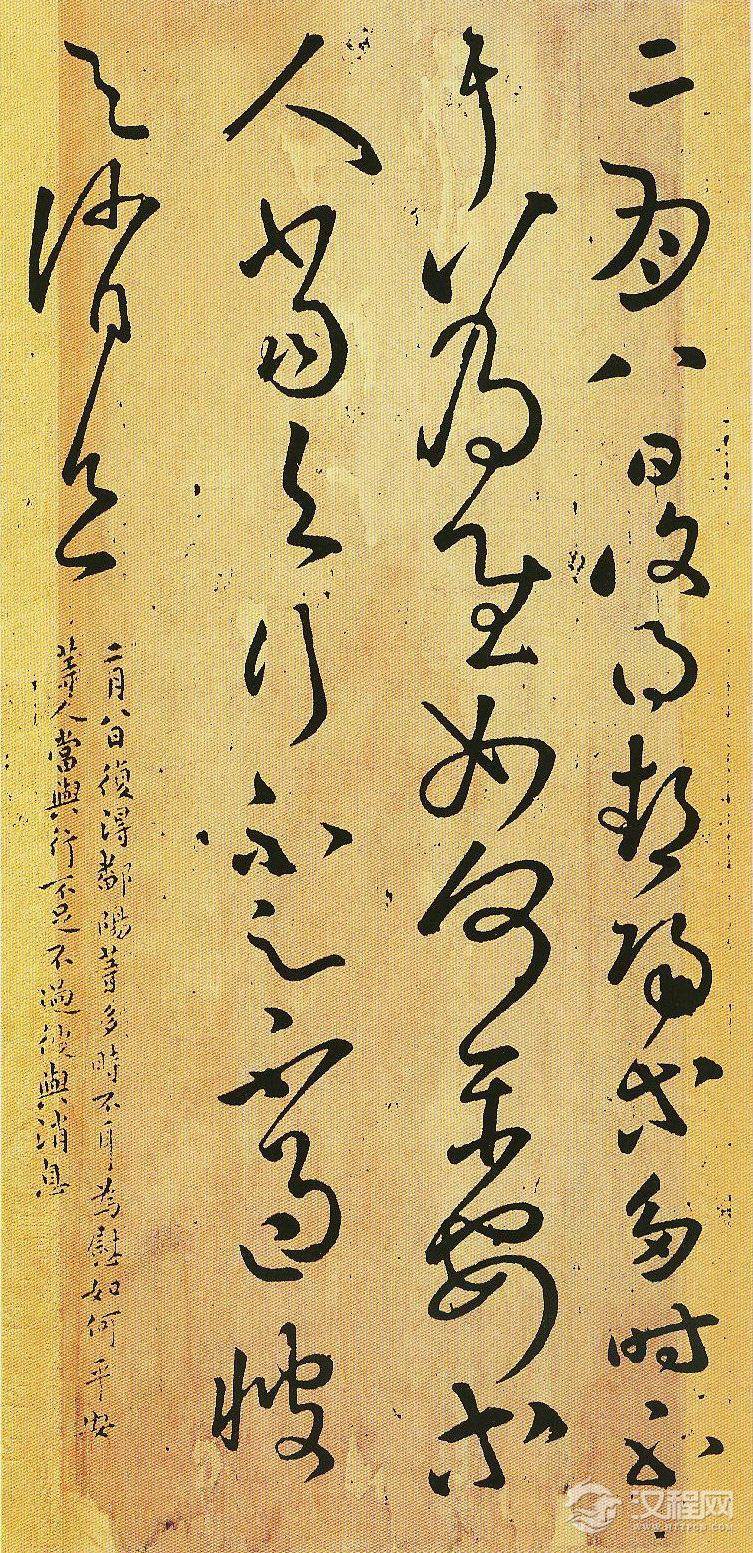 二月八日復得鄱陽等多時不
耳為慰如何平安等
人當與行不足不過彼
與消息
二月八日復得鄱陽等多時不耳為慰如何平安
等人當與行不足不過彼與消息
汉程网
WWW.HTTPCN.COM